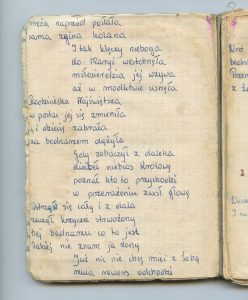 męża naprzód posłała
sama zgina kolana
I tak klęczy nieboga
do Maryi westchnęła
miłosierdzia jej wzywa
aż w modlitwie usnęła
Rodzicielka Najświętsza
w postać jej się zmieniła
i dziecię zabrała
za bednarzem dążyła
Gdy zobaczył z daleka
diabeł niebios królową
poznał kto tu przychodzi
w przerażeniu zwisł głową
się cały i z dala
zaczął krzyczeć strwożony
hej bednarzu co to jest
takiej nie znam ja żony
Już nic nie chcę mieć z Tobą
rewers odchodzi